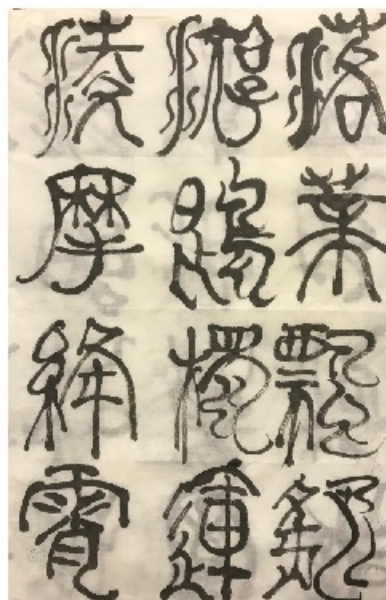 落葉飄颻
游鵾獨運
淩摩絳霄